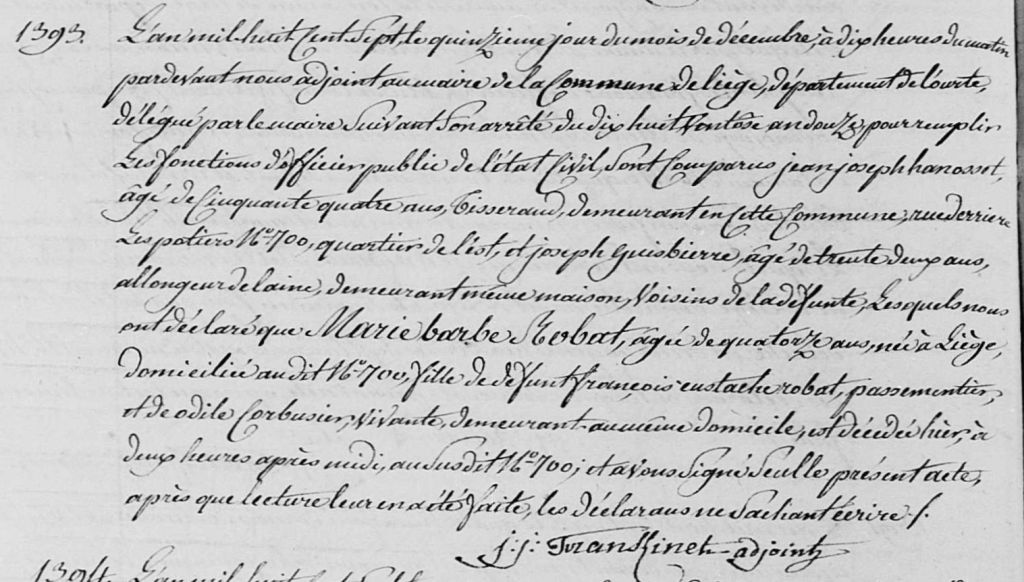 1393 L'an mil huit Cent Sept le quinzieme jour du mois de décembre, à dix heures du matin
pardevant nous adjoint au maire de la Commune de liège, département de l'ourte,
délégué par le maire Suivant Son arrêté du dix huit Ventôse an douze, pour remplir
Les fonctions d'officier public de l'état Civil, Sont Comparus jean joseph hanossot,
âgé de Cinquante quatre ans, tisserand, demeurant en Cette Commune, rue derriere
Les potiers N.o 700, quartier de l'est, et joseph Guisbierre, âgé de trente deux ans,
allongeur de laine, demeurant même maison, Voisins de la défunte, Lesquels nous
ont déclaré que Marie barbe Robat, âgée de quatorze ans, née à Liège,
domiciliée au dit N.o 700, fille de défunt françois eustache robat, passementier,
et de odile Corbusier, vivante, demeurant au même domicile, est décédé hier, à
deux heures après midi, au Susdit N.o 700; et avons Signé Seul le présent acte,
après que lecture leur en a été faite, les déclarans ne Sachant Écrire /.
j: j: adjoint
1394 L'an mil huit Cent Sept